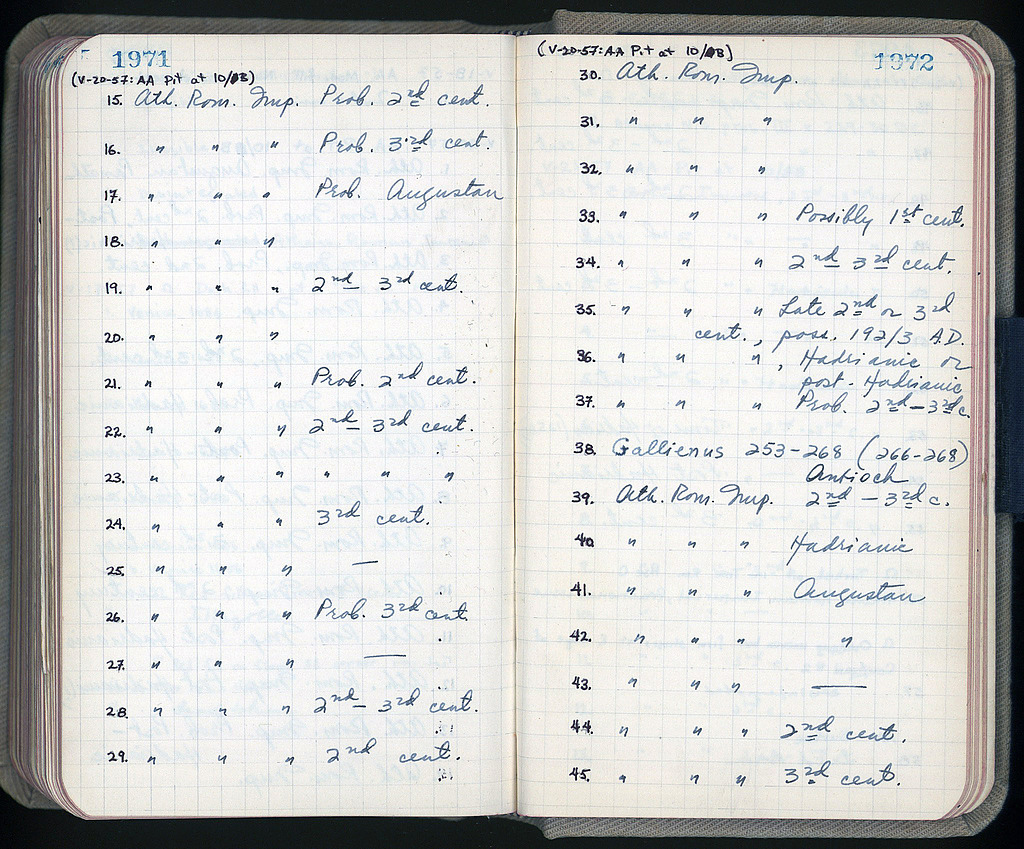 1971
(V-20-57: AA Pit at 10/ΛB)
15. Ath. Rom. Imp. Prob. 2nd cent.
16. " " " Prob. 3rd cent.
17. " " " Prob. Augustan
18. " " "
19. " " " 2nd – 3rd cent.
20. " " "
21. " " " Prob. 2nd cent.
22. " " " 2nd – 3rd cent.
23. " " " " " "
24. " " " 3rd cent.
25. " " " —
26. " " " Prob. 3rd cent.
27. " " " —
28. " " " 2nd – 3rd cent.
29. " " " 2nd cent.
(V-20-57: AA Pit at 10/ΛB)
1972
30. Ath. Rom. Imp.
31. " " "
32. " " "
33. " " " Possibly 1st cent.
34. " " " 2nd 3rd cent.
35. " " " Late 2nd or 3rd
cent., poss. 192/3 A.D.
36. " " ", Hadrianic or
post-Hadrianic
37. " " " Prob. 2nd – 3rd c.
38. Gallienus 253-268 (266-268)
Antioch
39. Ath. Rom. Imp. 2nd – 3rd c.
40. " " " Hadrianic
41. " " " Augustan
42. " " " "
43. " " " —
44. " " " 2nd cent.
45. " " " 3rd cent.